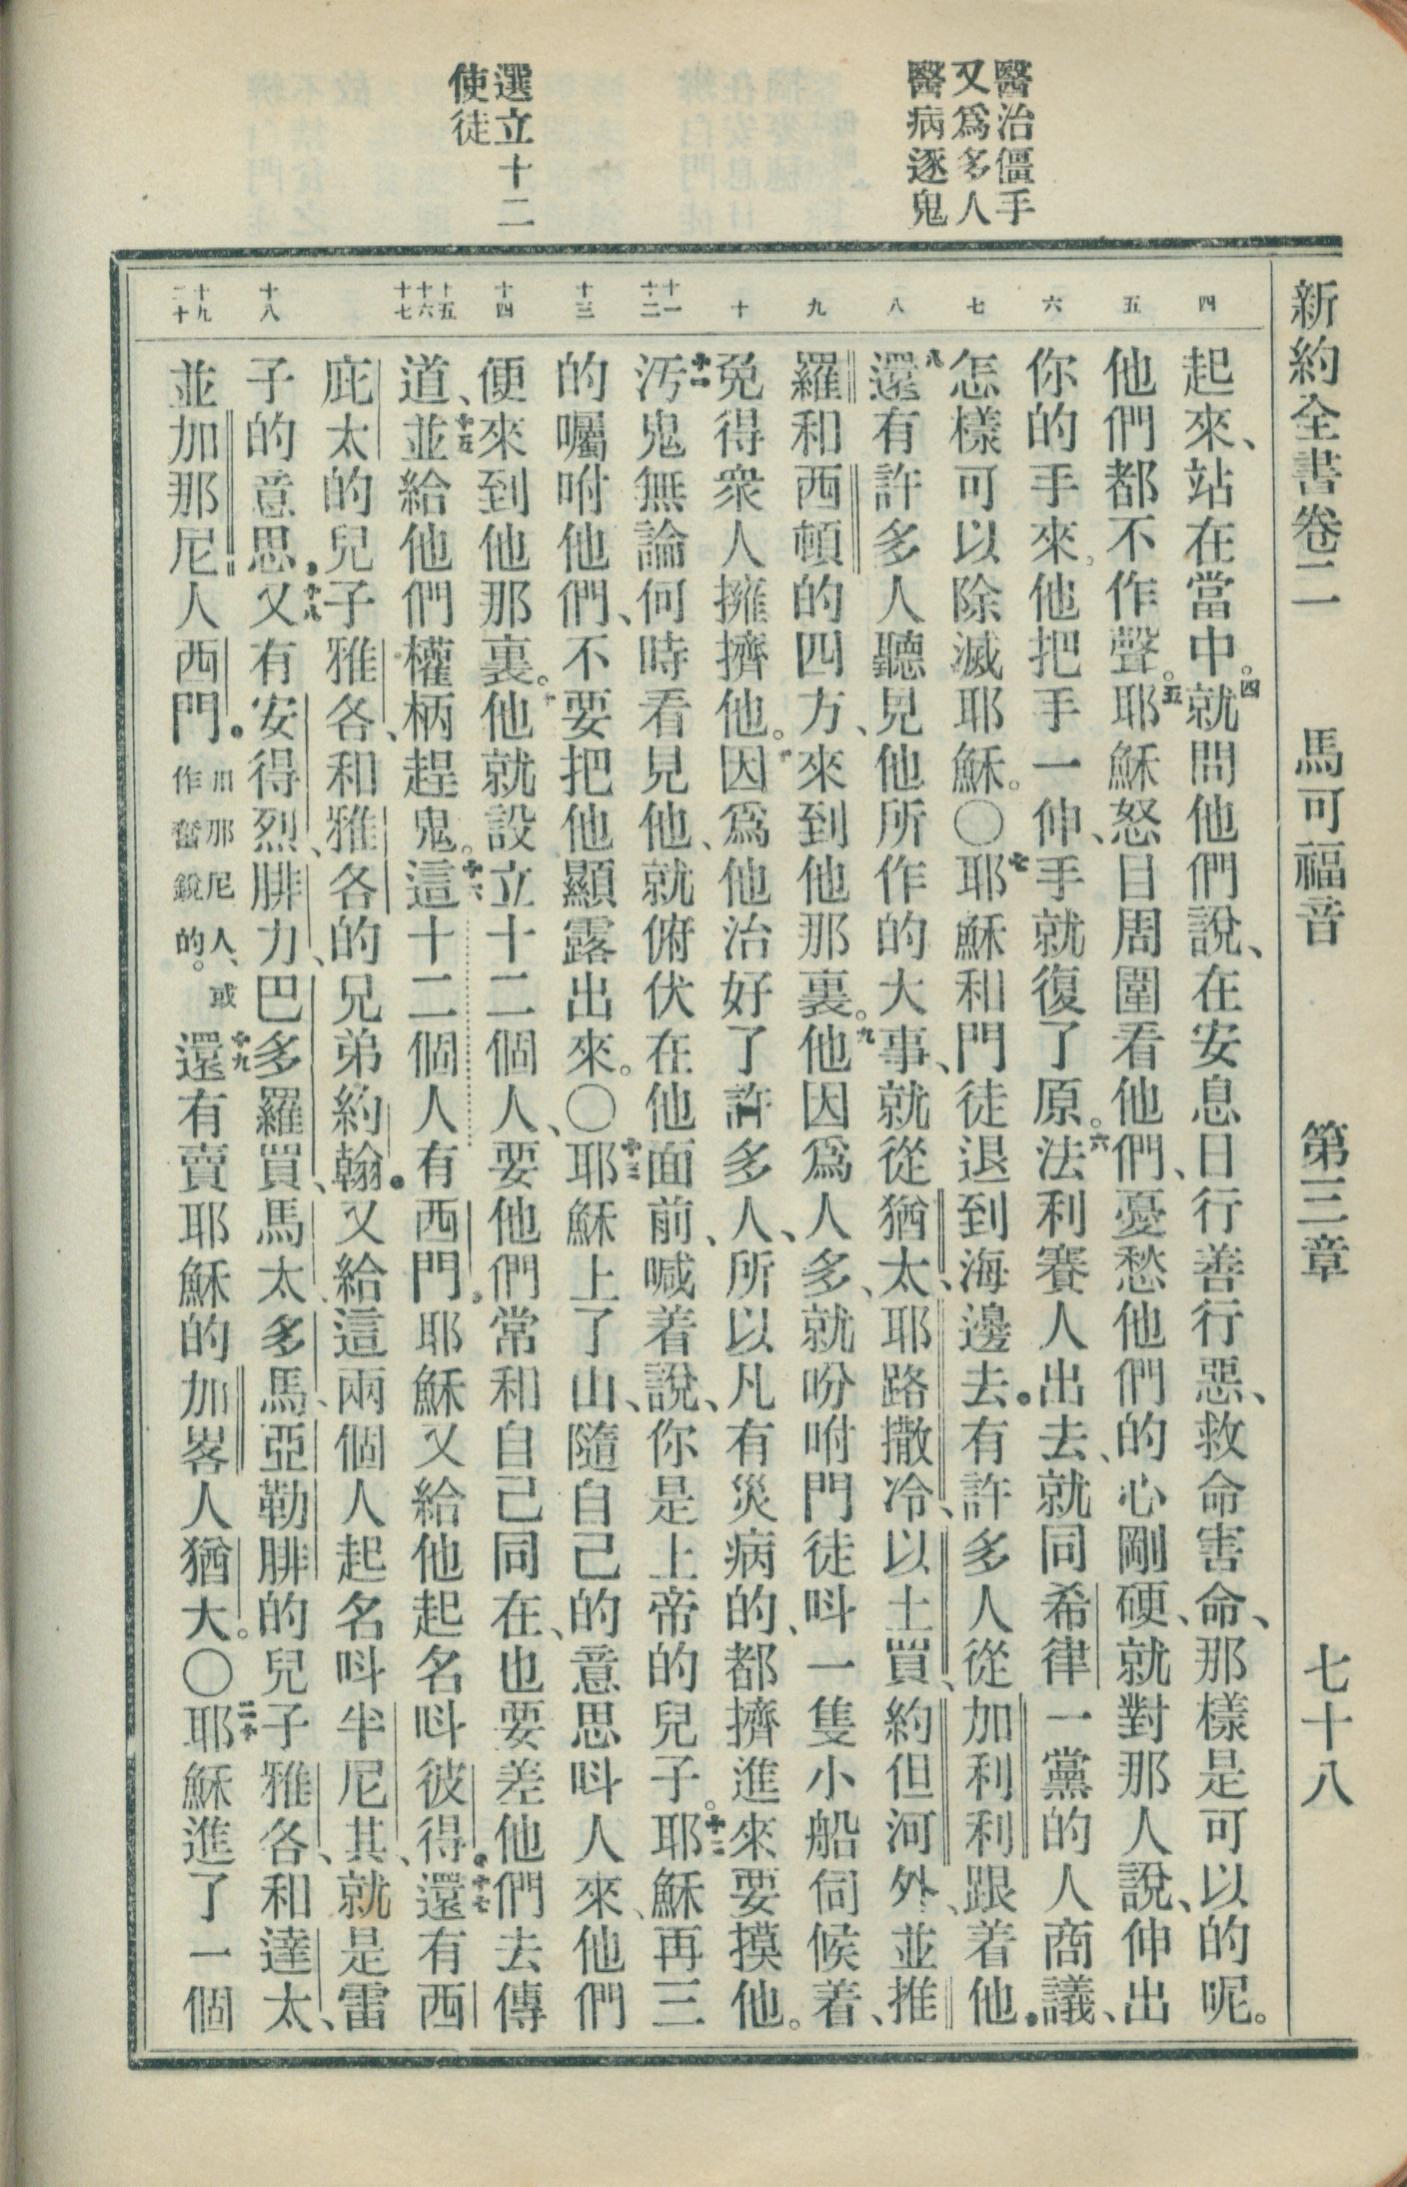 新約全書卷二　馬可福音　第三章　七十八
醫治僵手
又爲多人
醫病逐鬼
選立十二
使徒
四
五
六
七
八
九
十
十一
十二
十三
十四
十五
十六
十七
十八
十九
二十
起來、站在當中。四就問他們說、在安息日行善行惡、救命害命、那樣是可以的呢。
他們都不作聲。五耶穌怒目周圍看他們、憂愁他們的心剛硬、就對那人說、伸出
你的手來。他把手一伸、手就復了原。六法利賽人出去、就同希律一黨的人商議、
怎樣可以除滅耶穌。〇七耶穌和門徒退到海邊去。有許多人從加利利跟着他。
八還有許多人聽見他所作的大事、就從猶太、耶路撒冷、以土買、約但河外、並推
羅和西頓的四方、來到他那裏。九他因爲人多、就吩咐門徒呌一隻小船伺候着、
免得衆人擁擠他。十因爲他治好了許多人、所以凡有災病的、都擠進來要摸他。
十一汚鬼無論何時看見他、就俯伏在他面前、喊着說、你是上帝的兒子。十二耶穌再三
的囑咐他們、不要把他顯露出來。〇十三耶穌上了山、隨自己的意思呌人來、他們
便來到他那裏。十四他就設立十二個人、要他們常和自己同在、也要差他們去傳
道、十五並給他們權柄趕鬼。十六這十二個人有西門。耶穌又給他起名呌彼得。十七還有西
庇太的兒子雅各、和雅各的兄弟約翰。又給這兩個人起名呌半尼其、就是雷
子的意思。十八又有安得烈、腓力、巴多羅買、馬太、多馬、亞勒腓的兒子雅各、和達太、
並加那尼人西門。加那尼人、或作奮銳的。十九還有賣耶穌的加畧人猶大。〇二十耶穌進了一個